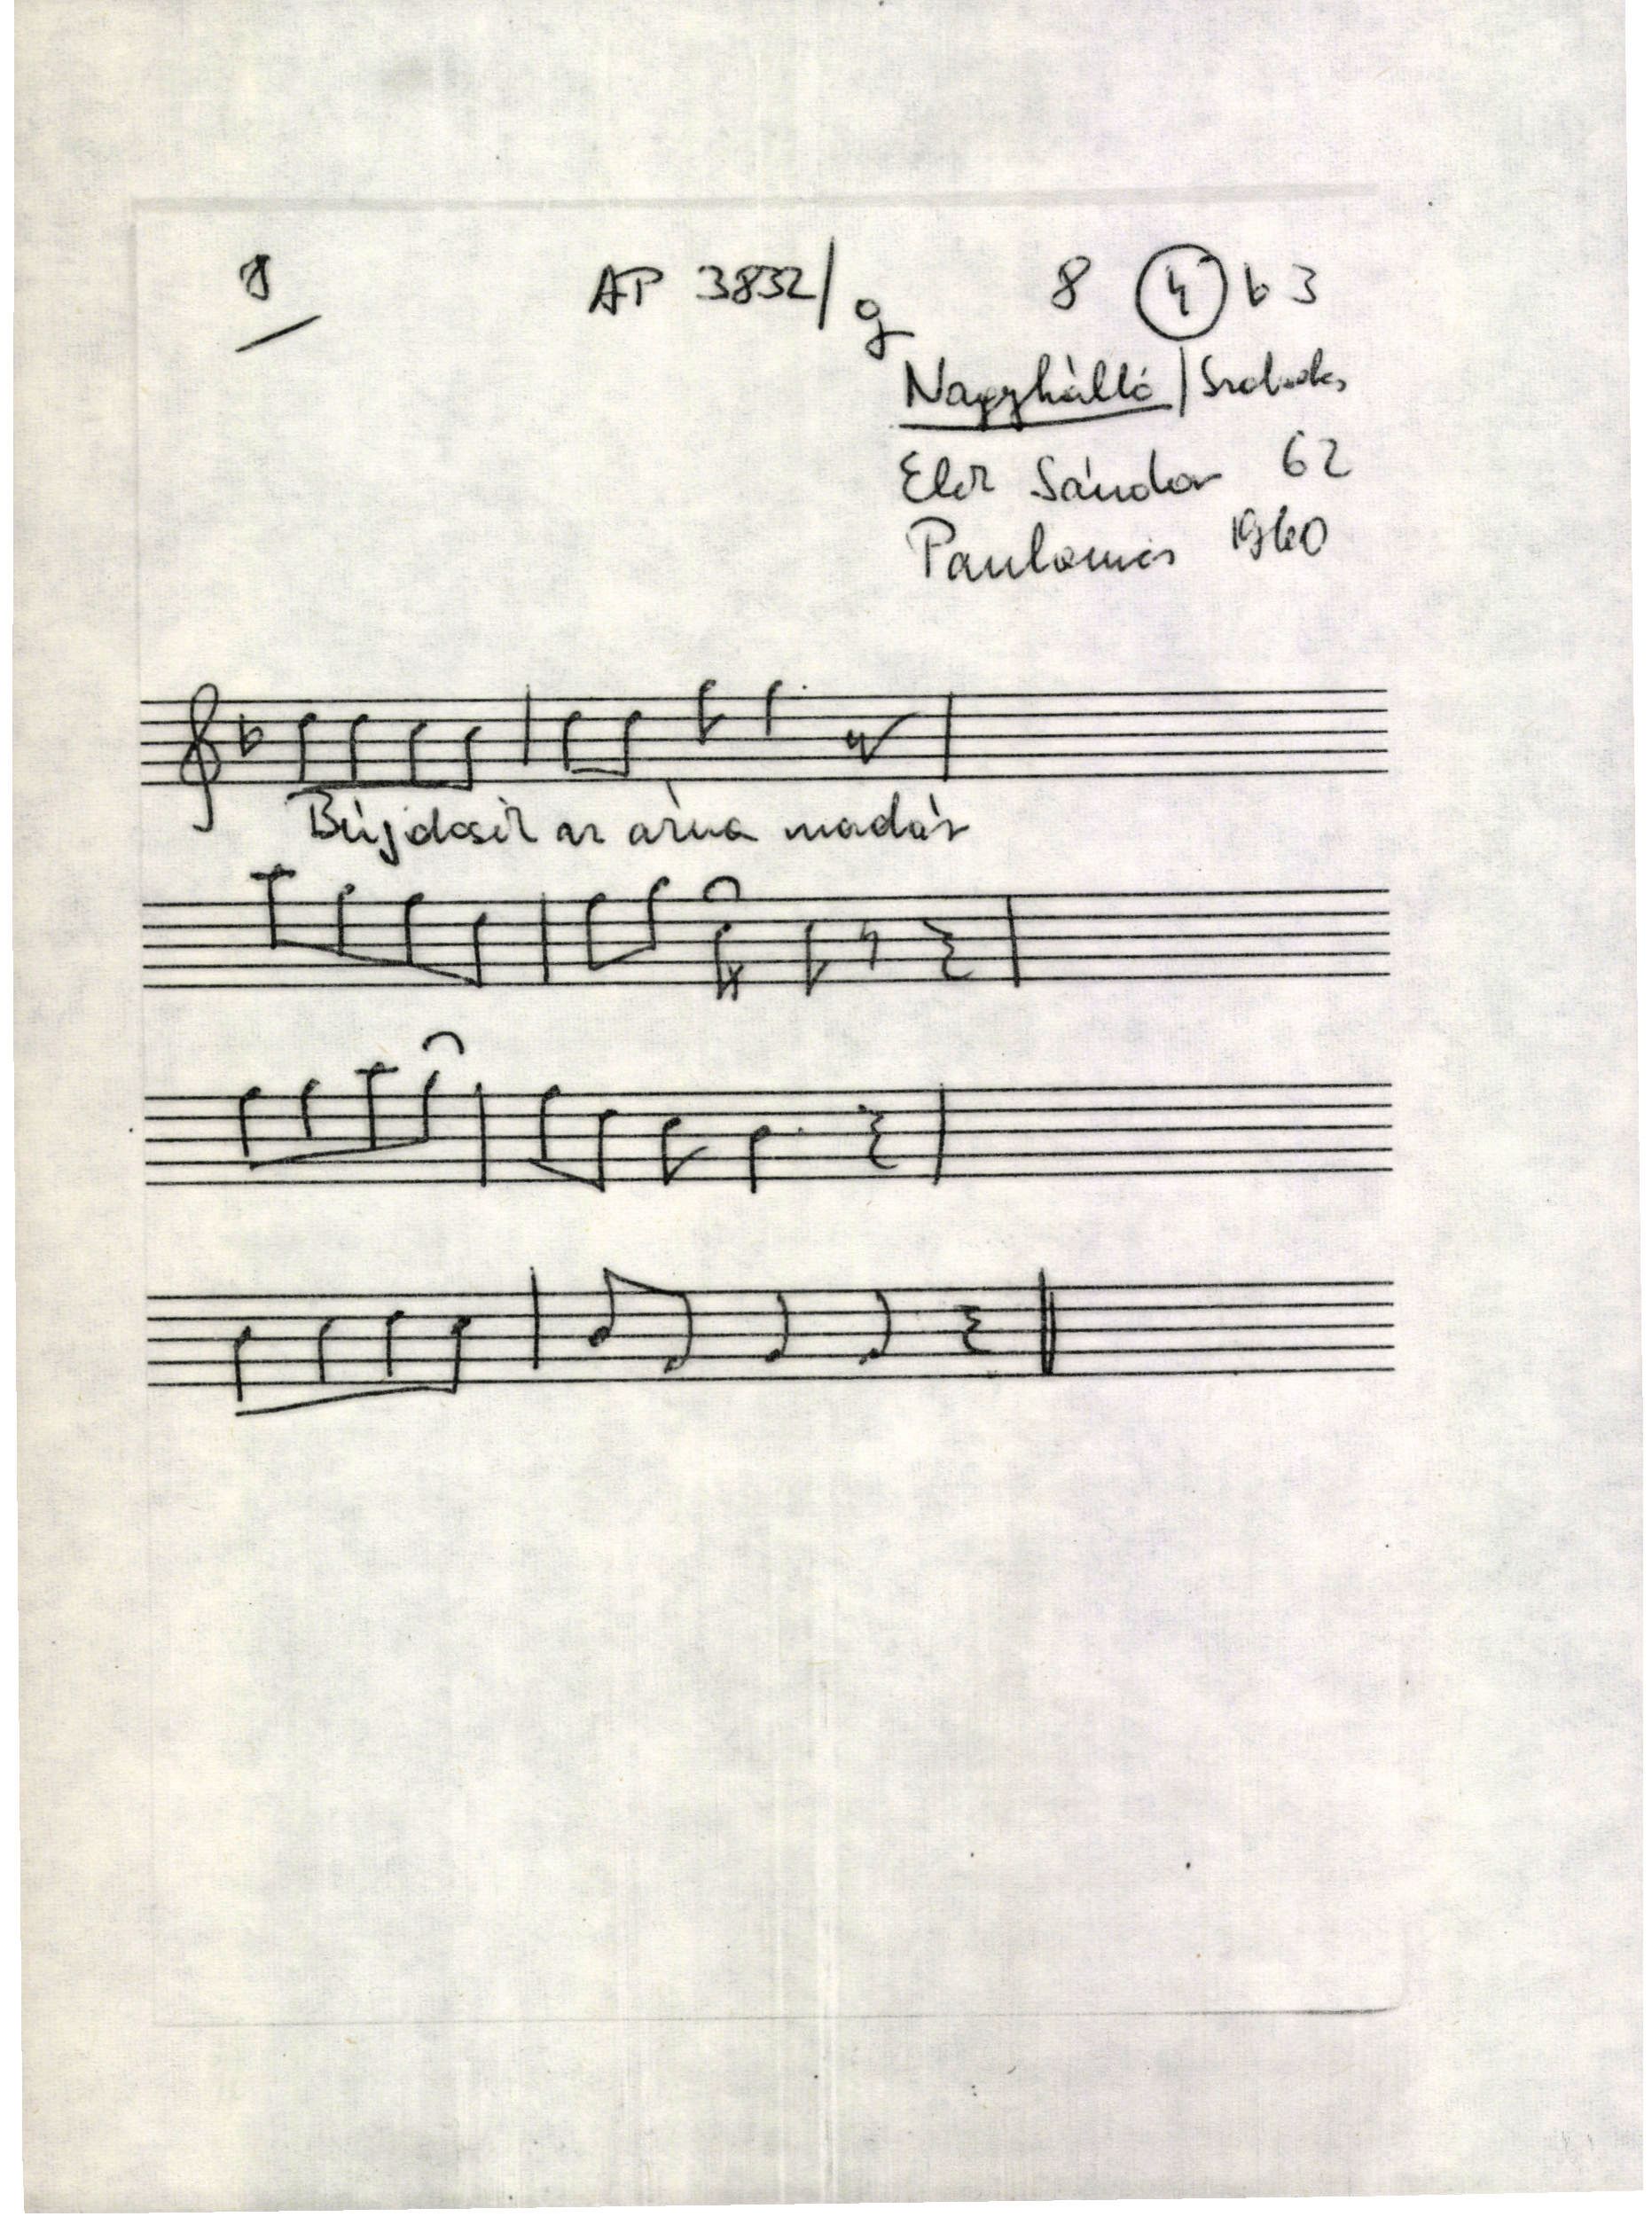 8 AP 3832/g 8 4 b3
Nagykálló / Szabolcs
Elek Sándor 62
1960
Bújdosik az árva madár